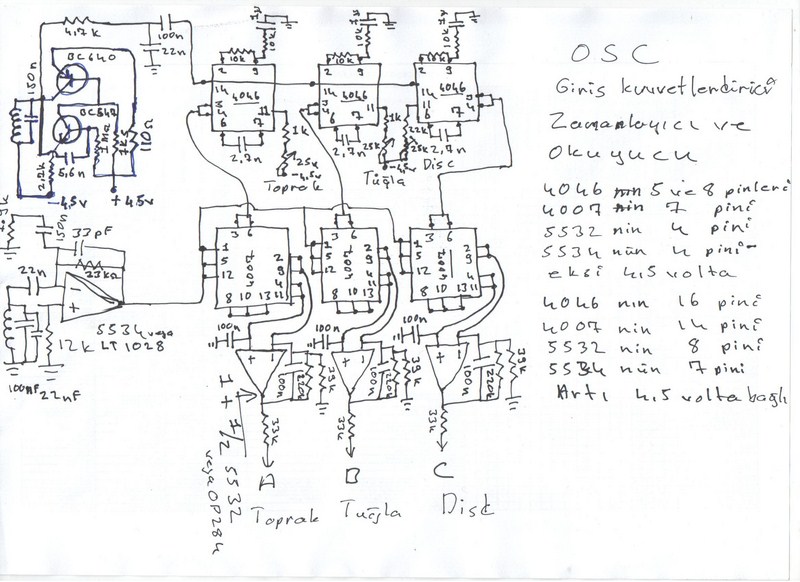 OSC
Giriş kuvvetlendirici
Zamanlayıcı ve
Okuyucu
4046 nın 5 ve 8 pinleri
4007 nin 7 pini
5532 nin 4 pini
5534 nün 4 pini
eksi 4,5 volta
4046 nın 16 pini
4007 nin 14 pini
5532 nin 8 pini
5534 nün 7 pini
Artı 4,5 volta bağlı
4,7k
100n
22n
150n
BC640
BC540
5,6n
2,2k
1k5
110Ω
-4,5v
+4,5v
10k
10k
2 9
14
4046
11
6 7
2,7n
1k
25k
-4,5v
Toprak
10k
10k
2 9
14
4046
11
6 7
2,7n
1k
25k
-4,5v
Tuğla
10k
10k
2 9
14
4046
11
6 7
2,7n
22k
25k
Disc
150n
33pF
23kΩ
22n
5534 veya
LT1028
12k
100nF
22nF
3 6
1
5
12
4007
2
9
4
11
8 10 13
3 6
1
5
12
4007
2
9
4
11
8 10 13
3 6
1
5
12
4007
2
9
4
11
8 10 13
100n
100n
220k
39k
33k
100n
100n
220k
39k
33k
100n
100n
220k
39k
33k
1 + 1/2 5532
veya OP284
A
B
C
Toprak
Tuğla
Disc